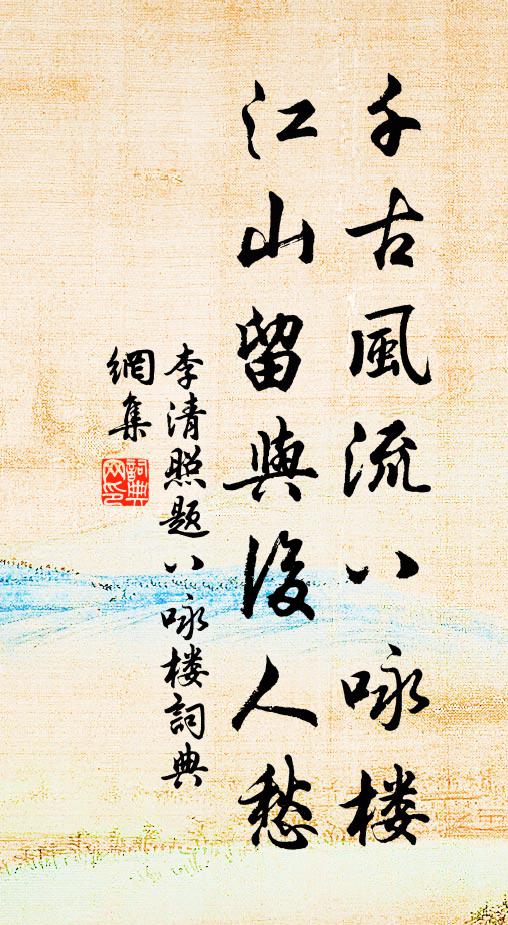 千古風流八咏楼
江山留與後人愁
李清照题八咏楼詞典
網集
詞典
网印